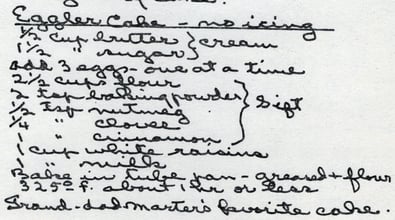 Eggler Cake - no icing
1/2 cup butter } cream
1 1/2 " sugar
add 3 eggs - one at a time
2 1/2 cups flour
2 tsp baking powder } Sift
1/2 tsp nutmeg
1/4 " cloves
" cinnamon
1 cup white raisins
1 " milk
Bake in tube pan - greased + flour
325° f. about 1 hr or less
Grand-dad Marter's favorite cake.